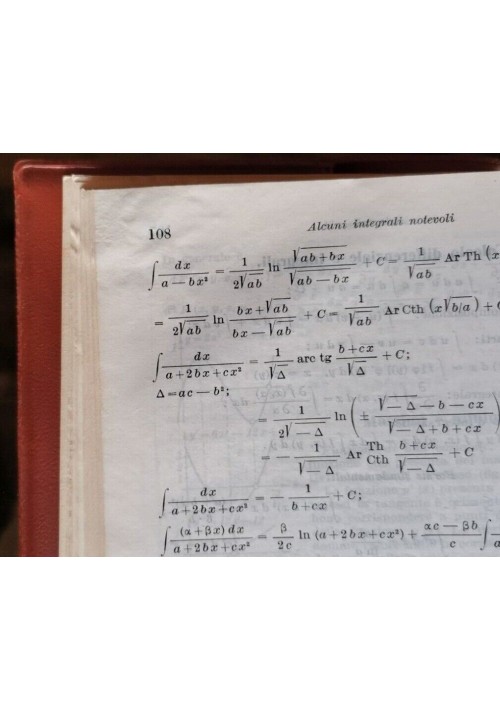 108 Alcuni integrali notevoli
∫ dx / (a — bx²) = 1 / (2√ab) ln (√ab + bx) / (√ab — bx) + C = 1 / √ab Ar Th (x
= 1 / (2√ab) ln (bx + √ab) / (bx — √ab) + C = 1 / √ab Ar Cth (x√b/a) +
∫ dx / (a + 2bx + cx²) = 1 / √Δ arc tg (b + cx) / √Δ + C;
Δ = ac — b²;
= 1 / (2√— Δ) ln (± (√— Δ — b — cx) / (√— Δ + b + cx)
= — 1 / √— Δ Ar Th Cth (b + cx) / √— Δ + C
∫ dx / (a + 2bx + cx²) = — 1 / (b + cx) + C;
∫ (α + βx) dx / (a + 2bx + cx²) = β / 2c ln (a + 2bx + cx²) + (αc — βb) / c ∫